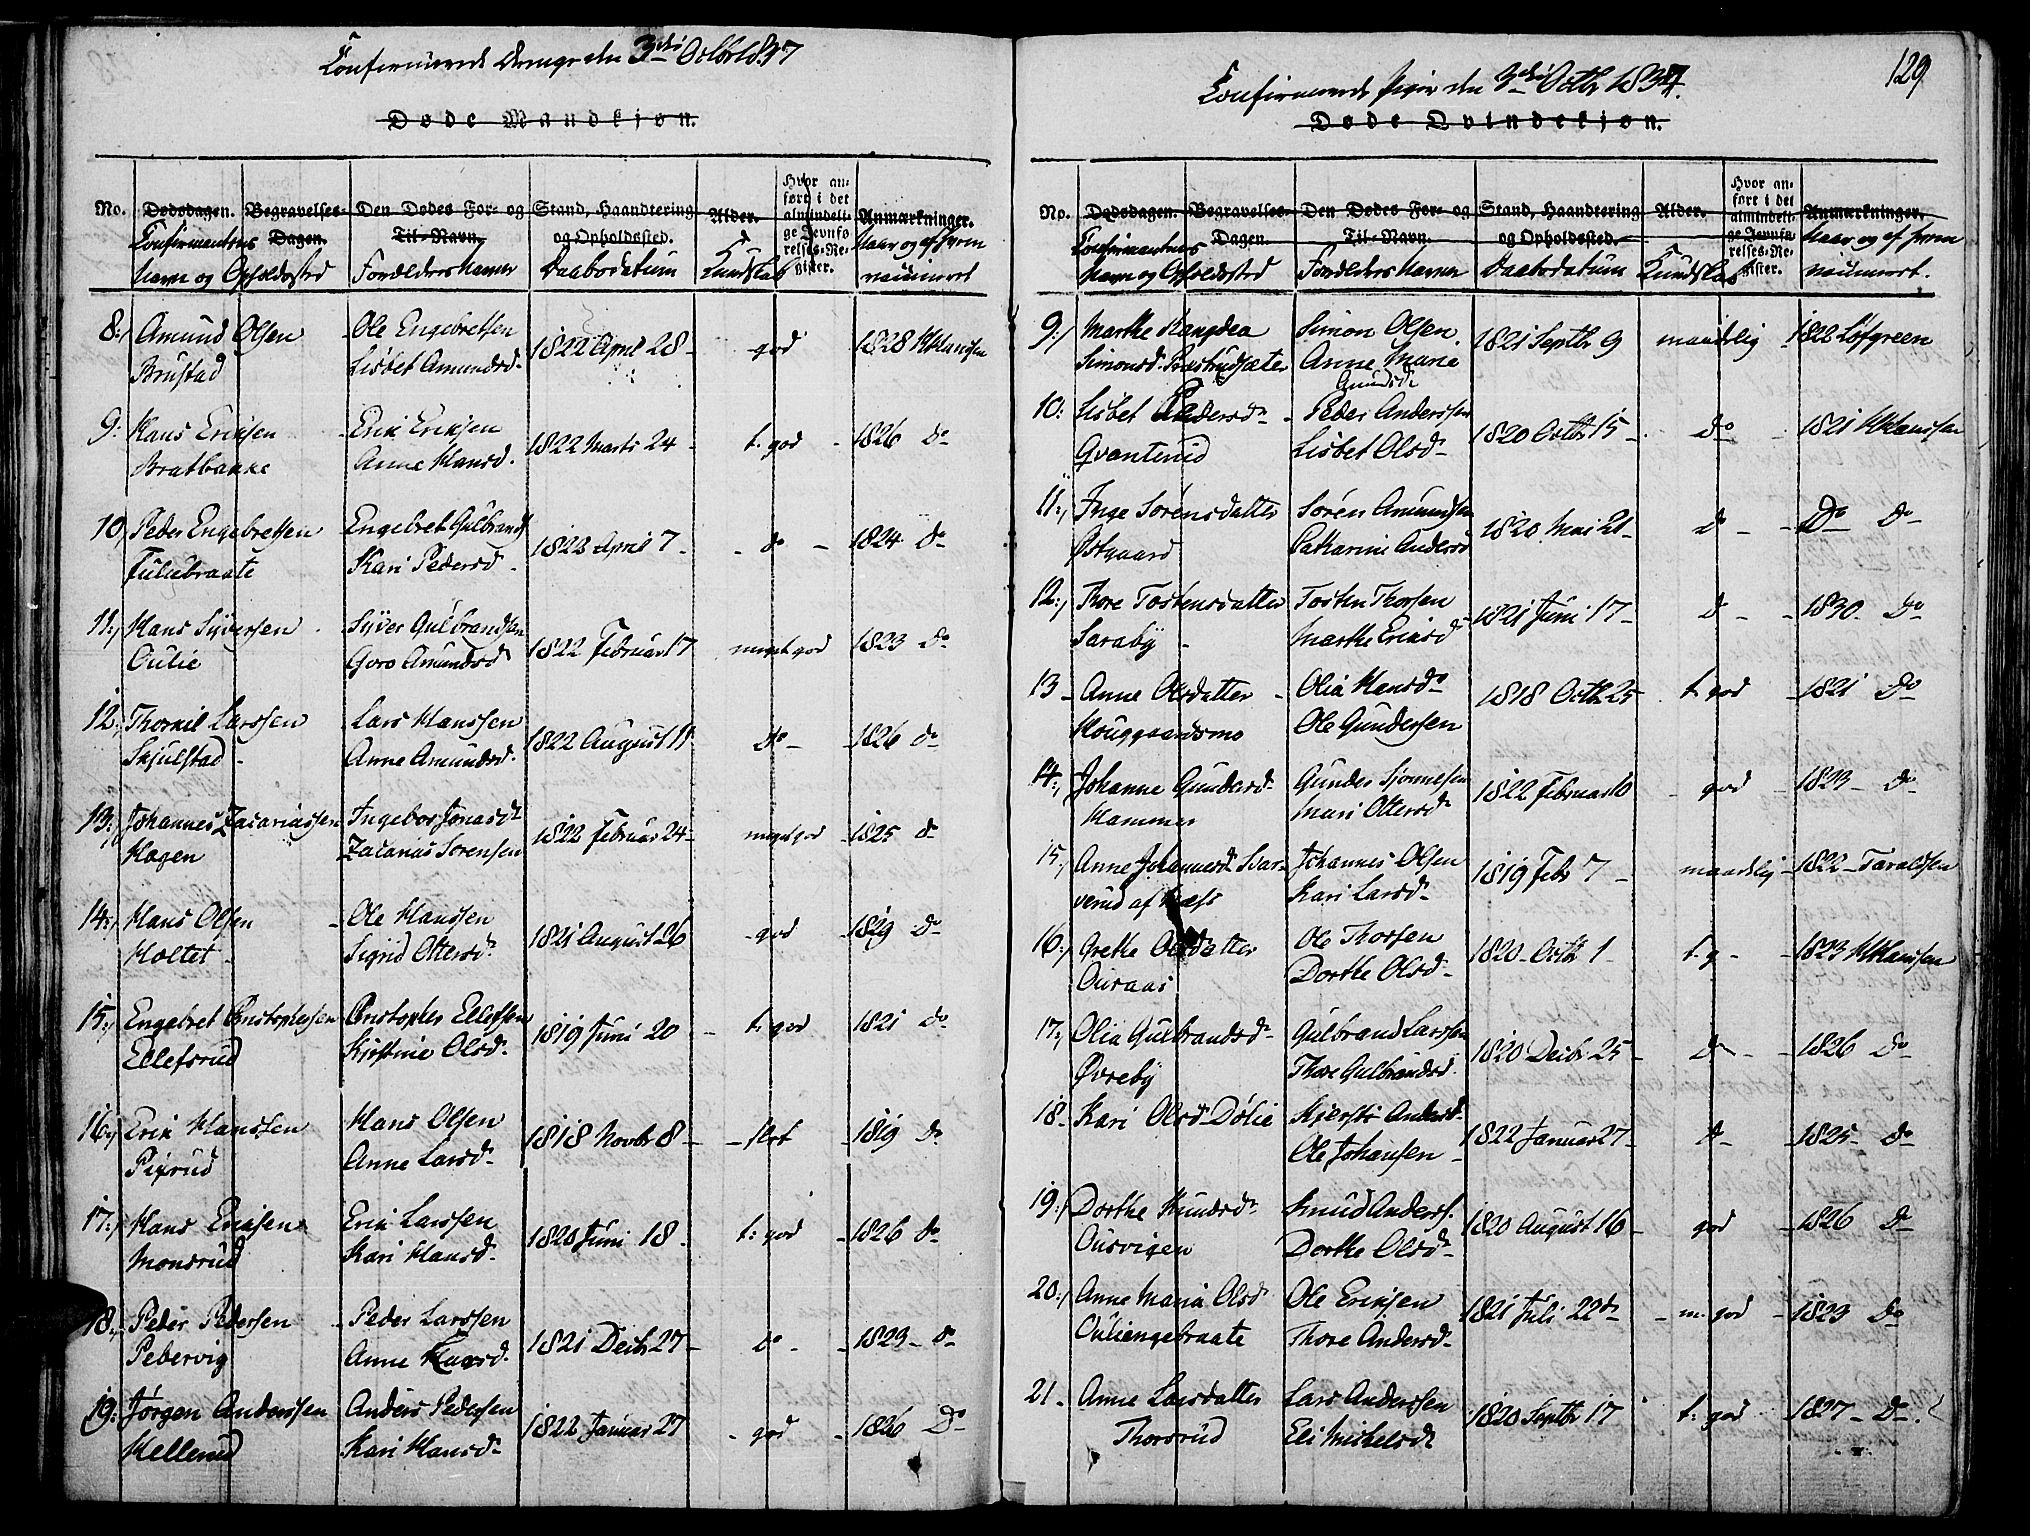 Confirmerede Drenge den 3die Octbr 1837
Døde Mandkjøn.
No.
Dødsdagen.
Begravelses-
Dagen.
Den Dødes For- og
Til-Navn.
Stand, Haandtering
og Opholdssted.
Alder.
Hvor an-
ført i det
almindeli-
ge Jevnfø-
relses-Re-
gister.
Anmærkninger.
Confirmantens
Navn og Opholdssted
Forældres Navne
Daabsdatum
Kundskab
Naar og af hvem
vaccineret
8:/ Amund Olsen Ole Engebretsen
Brustad Lisbet Amundsd. 1822 April 28 - god 1828 HHanssen
9: Hans Eriksen Erik Eriksen
Bratbakke Anne Hansd. 1822 Marts 24 - t. god - 1826 do
10/ Peder Engebretsen Engebret Gulbrands
Juliebraate Kari Pedersd - 1822 April 7 - - do - 1824 do
11:/ Hans Syversen Syver Gulbrandsen
Oulie Goro Amundsd 1822 Februar 17 meget god 1823 do
12:/ Thorkil Larssen Lars Hanssen
Skjulstad - Anne Amundsd. 1822 August 11 do - 1826 do
13:/ Johannes Zacariassen Ingebor Jonasd
Hagen Zacarias Sorensen 1822 Februar 24 - meget god 1825 do
14:/ Hans Olsen Ole Hanssen
Holtet - Sigrid Ottersd. 1821 August 26 - god - 1829 do
15:/ Engebret Christophersen Christopher Ellefsen
Ellefsrud Kjerstine Olsd. 1819 Juni 20 - t: god 1821 do
16:/ Erik Hanssen Hans Olsen
Pixrud Anne Larsd - 1818 Novbr 8 - - slet - 1819 do
17:/ Hans Eriksen Erik Larssen
Monsrud Kari Hansd. 1820 Juni 18. t: god - 1826 do
18:/ Peder Pedersen Peder Larssen
Pebervig Anne Hansd. 1821 Decbr 27 - do - - 1823 - do
19: Jørgen Anderssen Anders Pedersen
Hellerud Kari Hansd - 1822 Januar 27 - god - 1826 Do
129
Confirmerede Piger den 3die Octbr 1837.
Døde Qvindekjøn.
No.
Dødsdagen.
Begravelses-
Dagen.
Den Dødes For- og
Til-Navn.
Stand, Haandtering
og Opholdssted.
Alder.
Hvor an-
ført i det
almindeli-
ge Jevnfø-
relses-Re-
gister.
Anmærkninger.
Confirmantens
Navn og Opholdssted
Forældres Navne
Daabsdatum
Kundskab
Naar og af hvem
vaccineret.
9:/ Marthe Simon Olsen
Simonsd. Anne Maria 1821 Septbr 9 maadelig 1822 Løfgreen
Amundsd
10: Lisbet Pedersd - Peder Anderssen
Qvanterud Lisbet Olsd - 1820 Octbr 15 - do - 1821 HHanssen
11:/ Inge Sørensdatter Søren Amundsen
Østgaard Catharine Andersd 1820 Mai 21 - do - - Do Do
12:/ Thore Tostensdatter Tosten Thorsen
Saraby - Marthe Eriksd 1821 Juni 17 - d - - 1830 - Do
13 - Anne Olsdatter - Olia Hansd
Houggaardsmo Ole Gundersen 1818 Octbr 25 t. god - 1821 Do
14:/ Johanne Gundersd Gunder Sjonnesen
Hammer Mari Ottersd 1822 Februar 10 - god - 1823 - do
15:/ Anne Johannesd Svar- Johannes Olsen
verud af Næss Kari Larsd - 1819 Febr 7 - maadelig - 1822 - Taraldsen
16:/ Grethe Olsdatter Ole Thorsen
Ouraas Dorthe Olsd - 1820 - Octbr 1 - t. g - - 1823 HHanssen
17:/ Olia Gulbrandsd Gulbrand Larssen
Øvreby Thore Gulbrandsd 1820 Decbr 25 - do - - 1826 Do
18 - Kari Olsd Dølie Kjersti Andersd
Ole Johansen - 1822 Januar 27 - d - - 1825 - do
19:/ Dorthe Knudsd Knud Anderss.
Ousvigen Dorthe Olsd - 1820 August 16 - god - 1826 Do
20:/ Anne Maria Olsd Ole Eriksen
Ouliengebraate Thore Andersd - 1821 Juli 22de - - m. god - 1823 Do
21 - Anne Larsdatter Lars Anderssen
Thorsrud Eli Mikelsd 1820 Septbr 17 t: god - 1827 - Do.